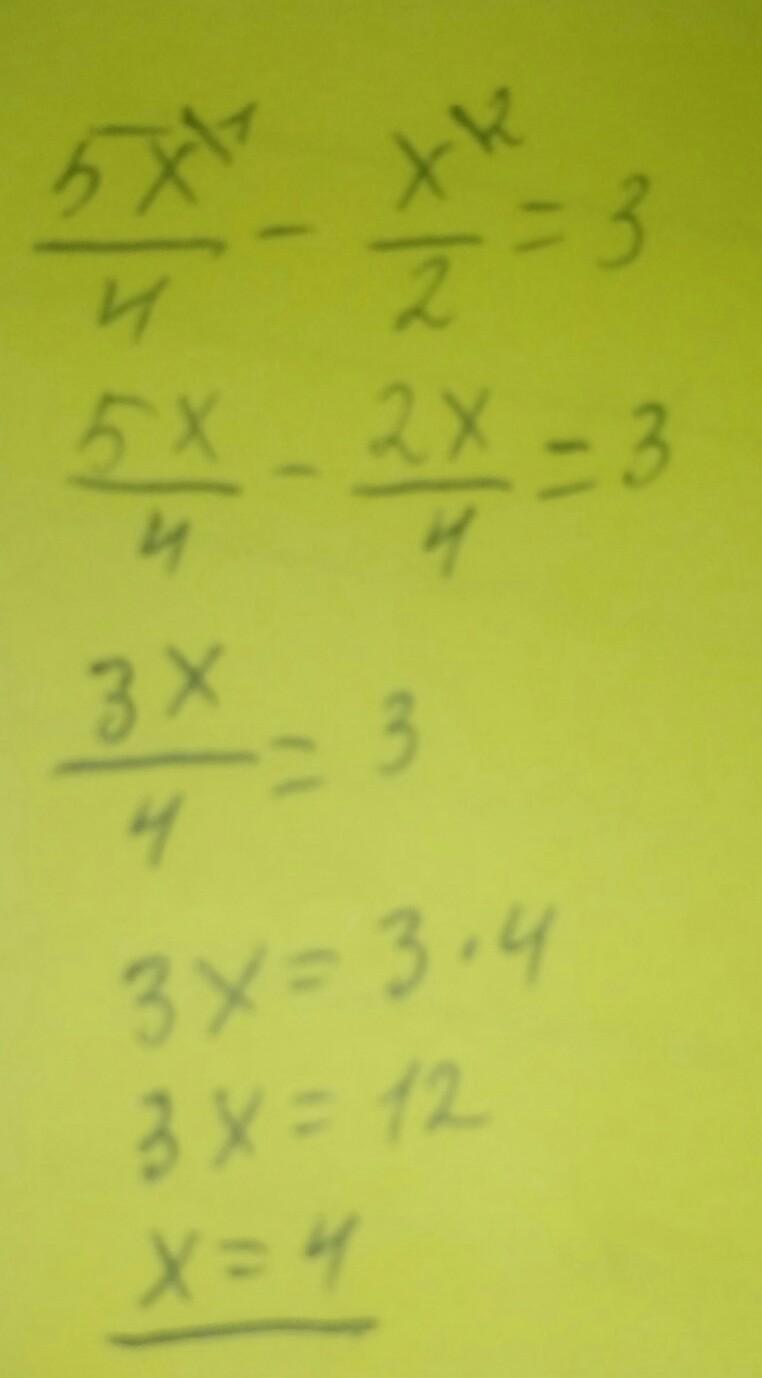 5x\1/4 - x\2/2 = 3
5x/4 - 2x/4 = 3
3x/4 = 3
3x = 3 · 4
3x = 12
x = 4